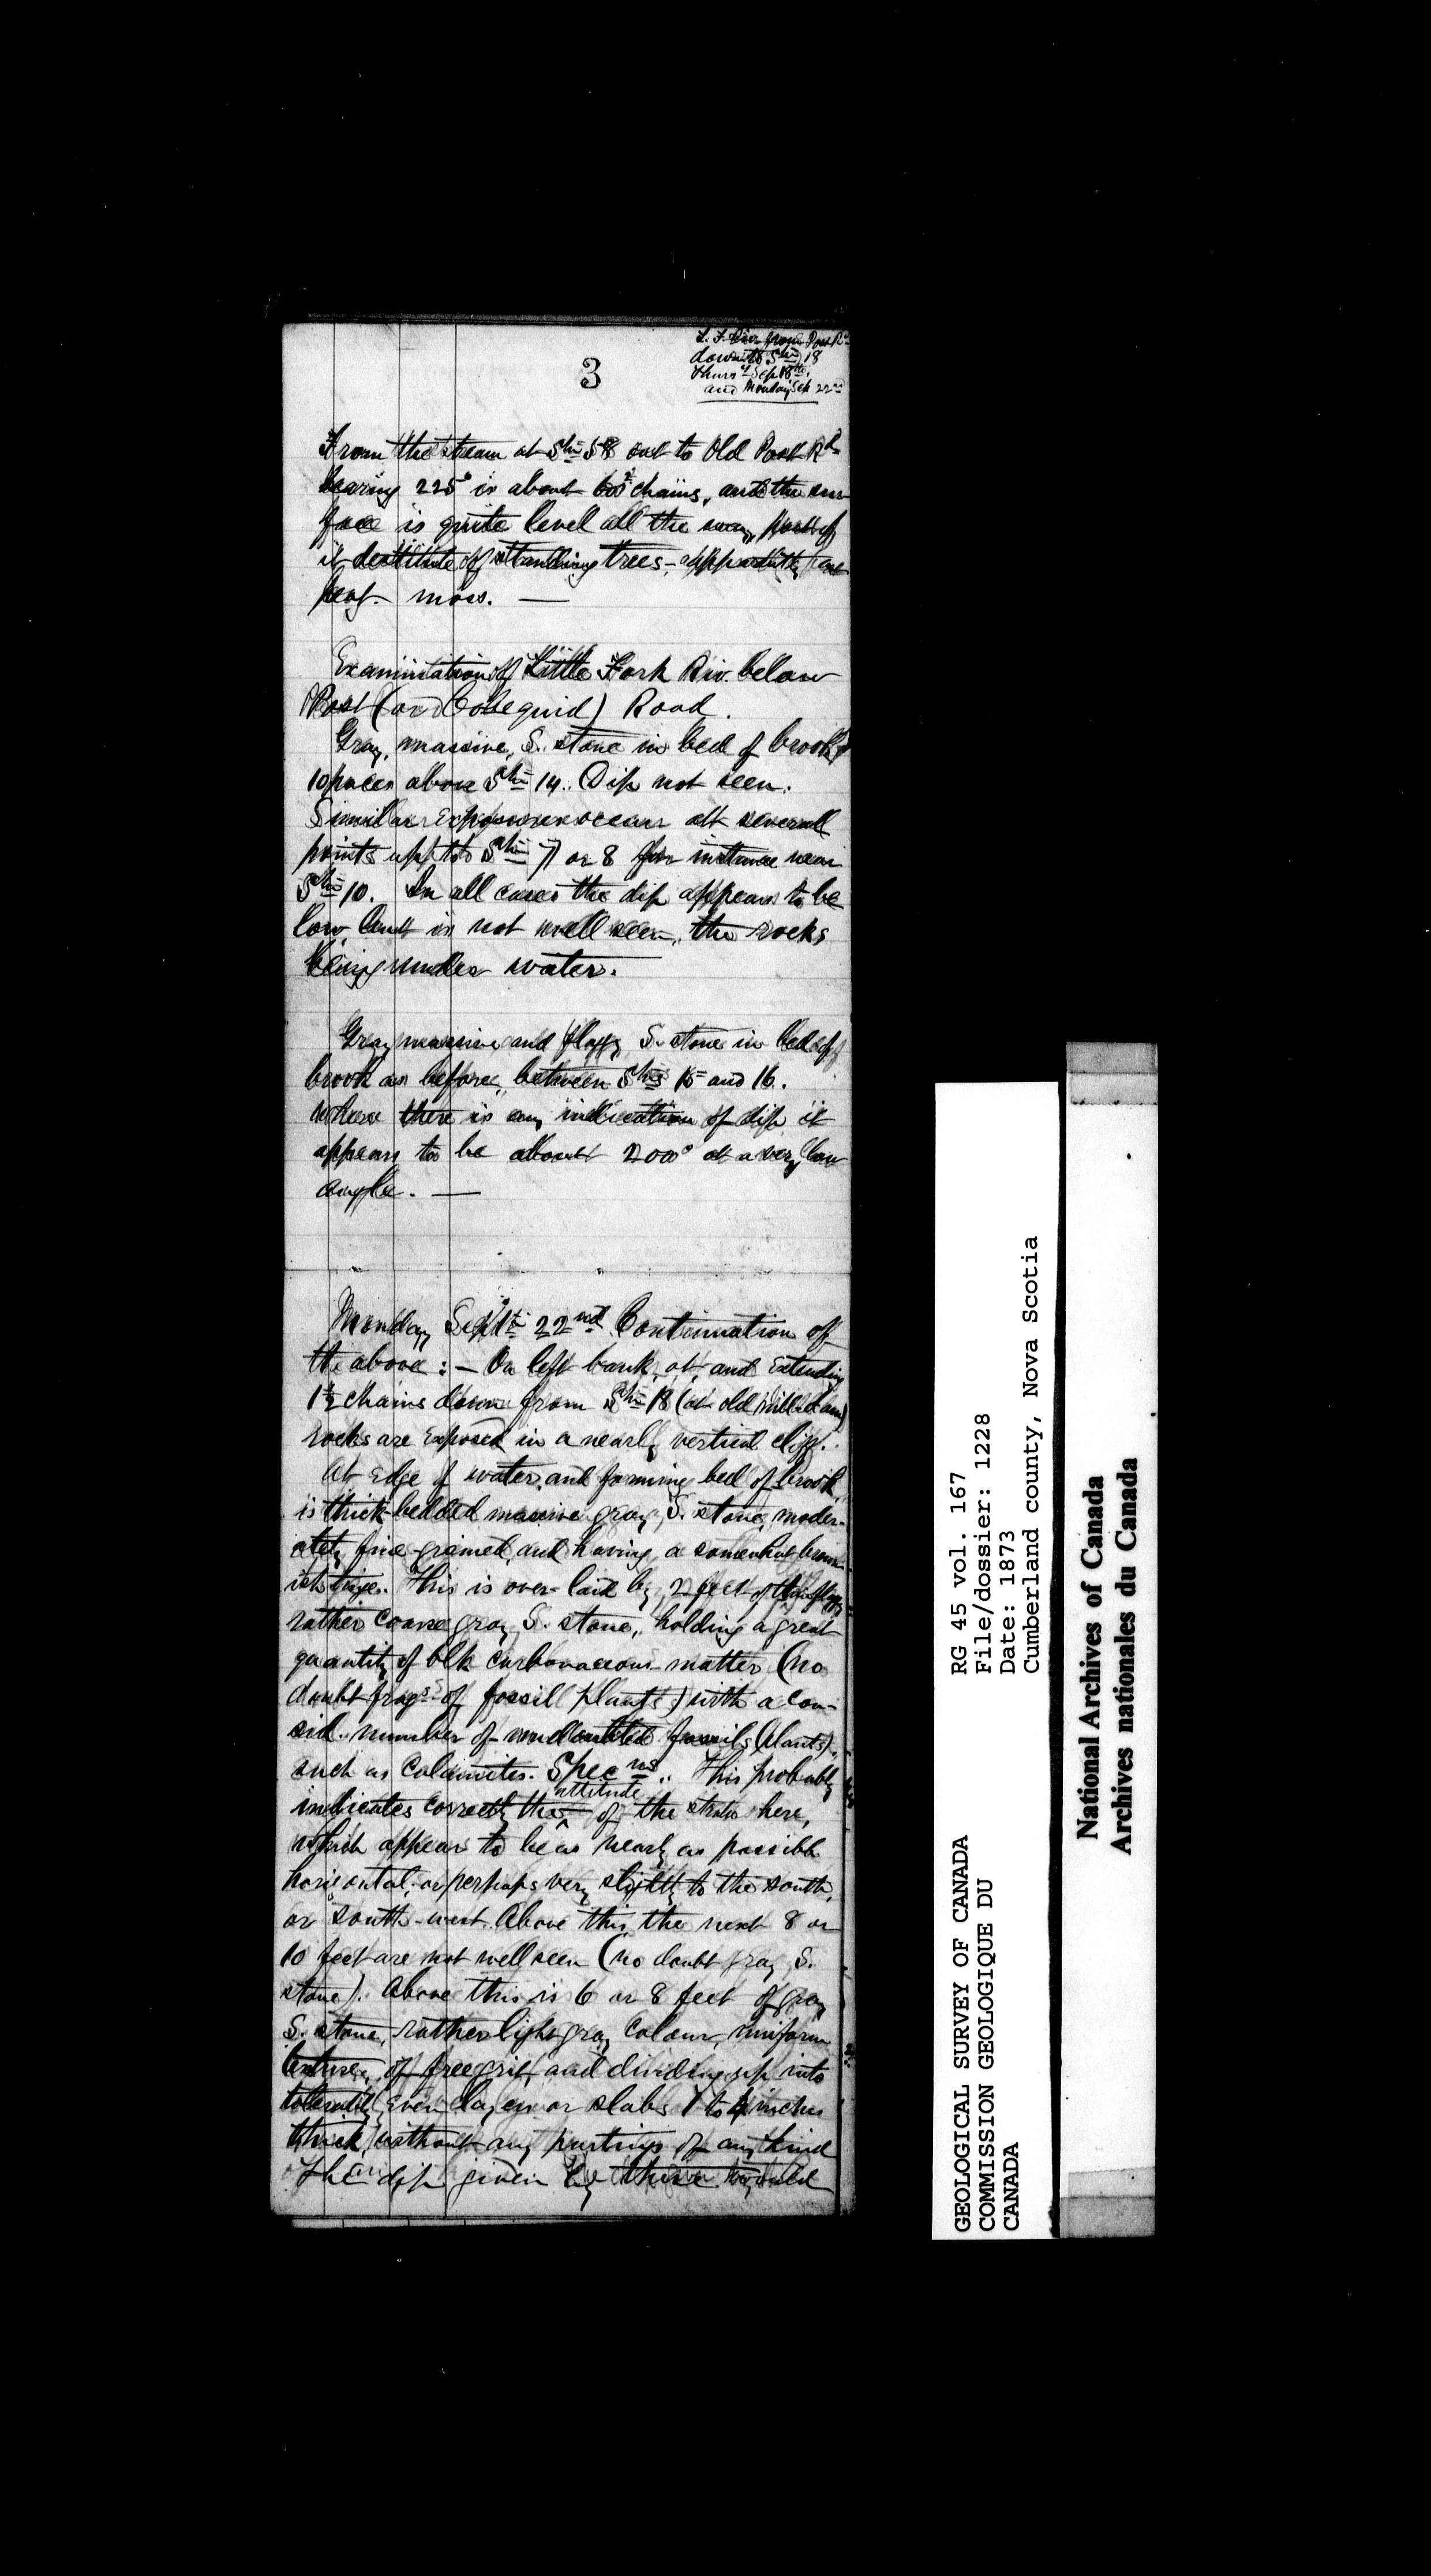 3
L. F. River from Post Rd
down to Stn 18
Thurs. Sep 18th,
and Monday Sep 22nd
From the stream at Stn 58 out to Old Post Rd
bearing 225° is about 60 chains, and the sur-
face is quite level all the way, part of
it destitute of standing trees - apparently
peat - moss. —
Examination of Little Fork Riv. below
Post (or Cobequid) Road.
Gray, massive, S. stone in bed of brook
10 paces above Stn 14. Dip not seen.
Similar exposures occur at several
points up to Stn 7 or 8 for instance near
Stn 10. In all cases the dip appears to be
low but is not well seen, the rocks
being under water.
Gray massive and flaggy S. stone in bed of
brook as before, between Stns 15 and 16.
Where there is any indication of dip it
appears to be about 200° at a very low
angle. —
Monday Sept. 22nd Continuation of
the above : — On left bank, at, and extending
1½ chains down from Stn 18 (at old mill dam)
rocks are exposed in a nearly vertical cliff.
At edge of water, and forming bed of brook,
is thick-bedded massive gray S. stone, moder-
ately fine-grained, and having a somewhat brown-
ish tinge. This is over-laid by 2 feet of
rather coarse gray S. stone, holding a great
quantity of blk carbonaceous matter (no
doubt frags. of fossil plants) with a con-
sid. number of undoubted fossils (plants),
such as Calamites. Specns. This probably
indicates correctly the attitude of the strata here,
which appear to be as nearly as possible
horizontal, or perhaps very slightly to the south,
or south-west. Above this, the next 8 or
10 feet are not well seen (no doubt gray S.
stone). Above this is 6 or 8 feet of gray
S. stone, rather light gray colour, uniform
texture, of free grit, and dividing up into
tolerably even layers or slabs 1 to 4 inches
thick, without any partings of any kind
The dip given by these would
GEOLOGICAL SURVEY OF CANADA
COMMISSION GEOLOGIQUE DU
CANADA
RG 45 vol. 167
File/dossier: 1228
Date: 1873
Cumberland county, Nova Scotia
National Archives of Canada
Archives nationales du Canada